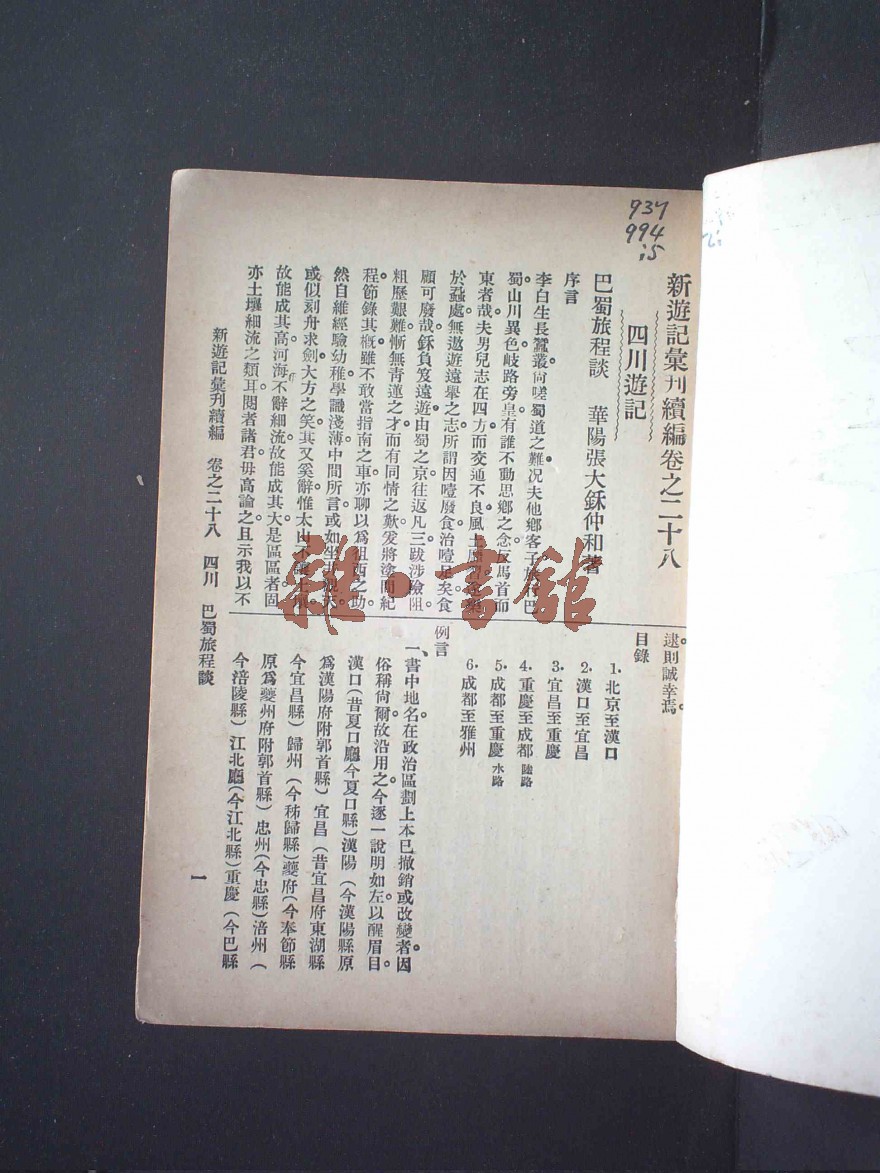 937
994
i5
新遊記彙刊續編卷之二十八
四川遊記
巴蜀旅程談 華陽張大鉌仲和著
序言
李白生長蠶叢。尚嗟蜀道之難。况夫他鄉客子。旅行巴
蜀。山川異色。歧路旁皇。有誰不動思鄉之念。反馬首而
東者哉。夫男兒志在四方。而交通不良。風土
於蝨處。無遨遊遠舉之志。所謂因噎廢食。治噎足矣。食
顧可廢哉。鉌負笈遠遊。由蜀之京。往返凡三。跋涉險阻。
粗歷艱難。慚無靑蓮之才。而有同情之歎。爰將塗間紀
程。節錄其槪。雖不敢當指南之車。亦聊以爲徂西之助。
然自維經驗幼稚。學識淺薄。中間所言。或如坐井觀天。
或似刻舟求劍。大方之笑。其又奚辭。惟太山不讓土壤。
故能成其高。河海不辭細流。故能成其大。是區區者。固
亦土壤細流之類耳。閱者諸君。毋高論之。且示我以不
逮。則誠幸焉。
目錄
1. 北京至漢口
2. 漢口至宜昌
3. 宜昌至重慶
4. 重慶至成都 陸路
5. 成都至重慶 水路
6. 成都至雅州
例言
一、書中地名。在政治區劃上。本已撤銷或改變者。因
俗稱尙爾。故沿用之。今逐一說明如左。以醒眉目。
漢口（昔夏口廳今夏口縣）漢陽（今漢陽縣原
爲漢陽府附郭首縣）宜昌（昔宜昌府東湖縣
今宜昌縣）歸州（今秭歸縣）夔府（今奉節縣
原爲夔州府附郭首縣）忠州（今忠縣）涪州（
今涪陵縣）江北廳（今江北縣）重慶（今巴縣
新遊記彙刊續編 卷之二十八 四川 巴蜀旅程談
一
雜·書館